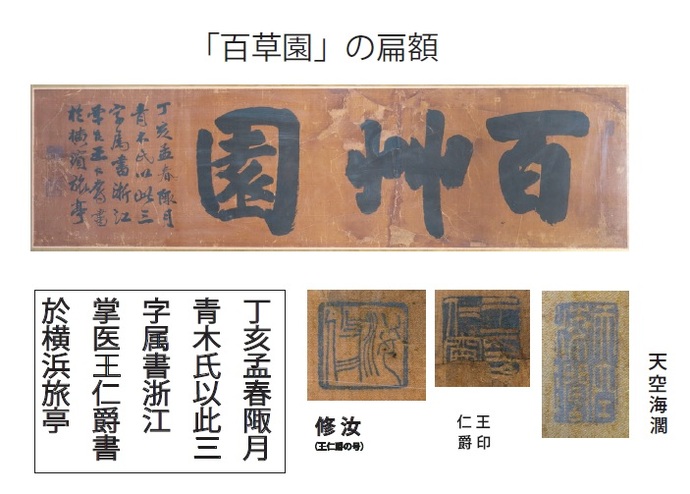 「百草園」の扁額
百艸園
丁亥孟春陬月
青木氏以此三
字属書浙江
掌医王仁爵書
於横浜旅亭
丁亥孟春陬月
青木氏以此三
字属書浙江
掌医王仁爵書
於横浜旅亭
汝修
(王仁爵の号)
王印
仁爵
天空海濶